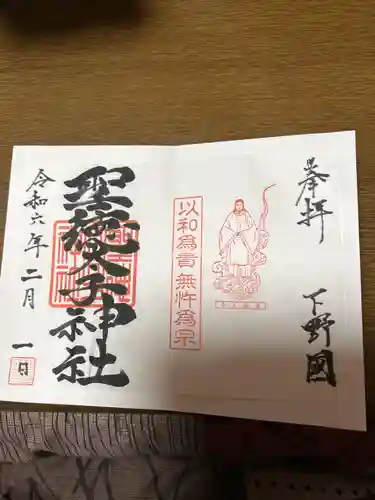 奉拝
下野國
以和為貴無忤為宗
聖徳太子神社
令和六年二月
一日